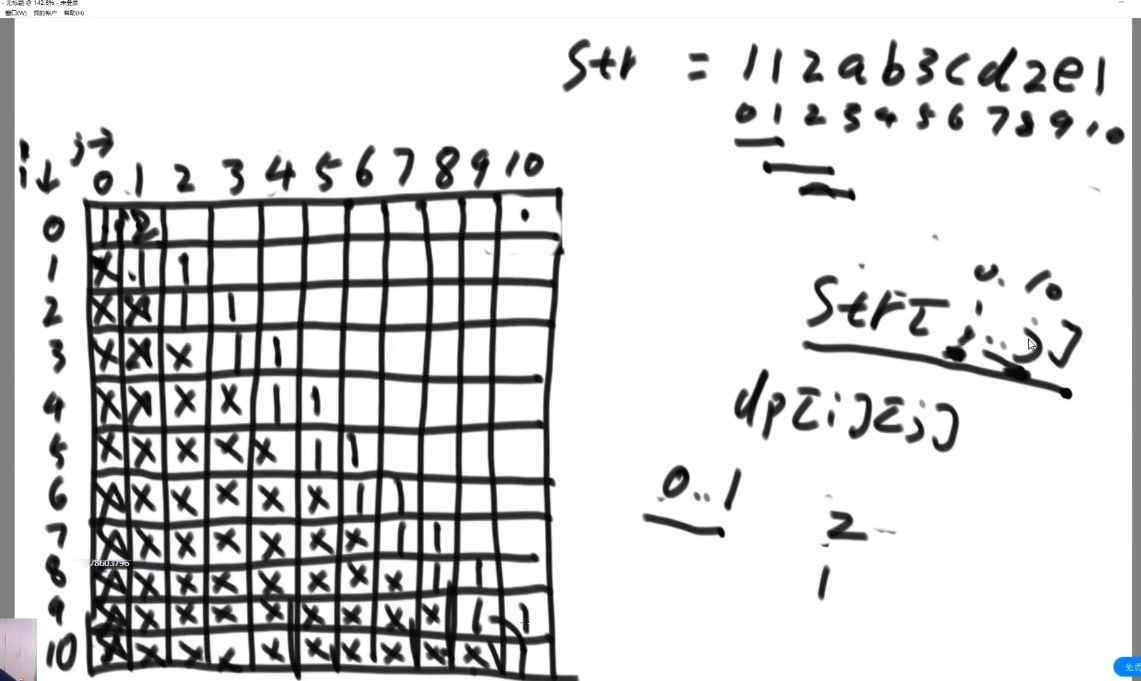 - 无标题 @ 142.8% - 未登录
窗口(W) 我的帐户 帮助(H)
Str = 112ab3cd2e1
0 1 2 3 4 5 6 7 8 9 10
i↓ j→
0 1 2 3 4 5 6 7 8 9 10
0 1 2
1 X 1 1
2 X X 1 1
3 X X X 1 1
4 X X X X 1 1
5 X X X X X 1 1
6 X X X X X X 1 1
7 X X X X X X X 1 1
8 X X X X X X X X 1 1
9 X X X X X X X X X 1 1
10 X X X X X X X X X X 1
0. 10
Str[i..j]
dp[i][j]
0..1
2
1
免费